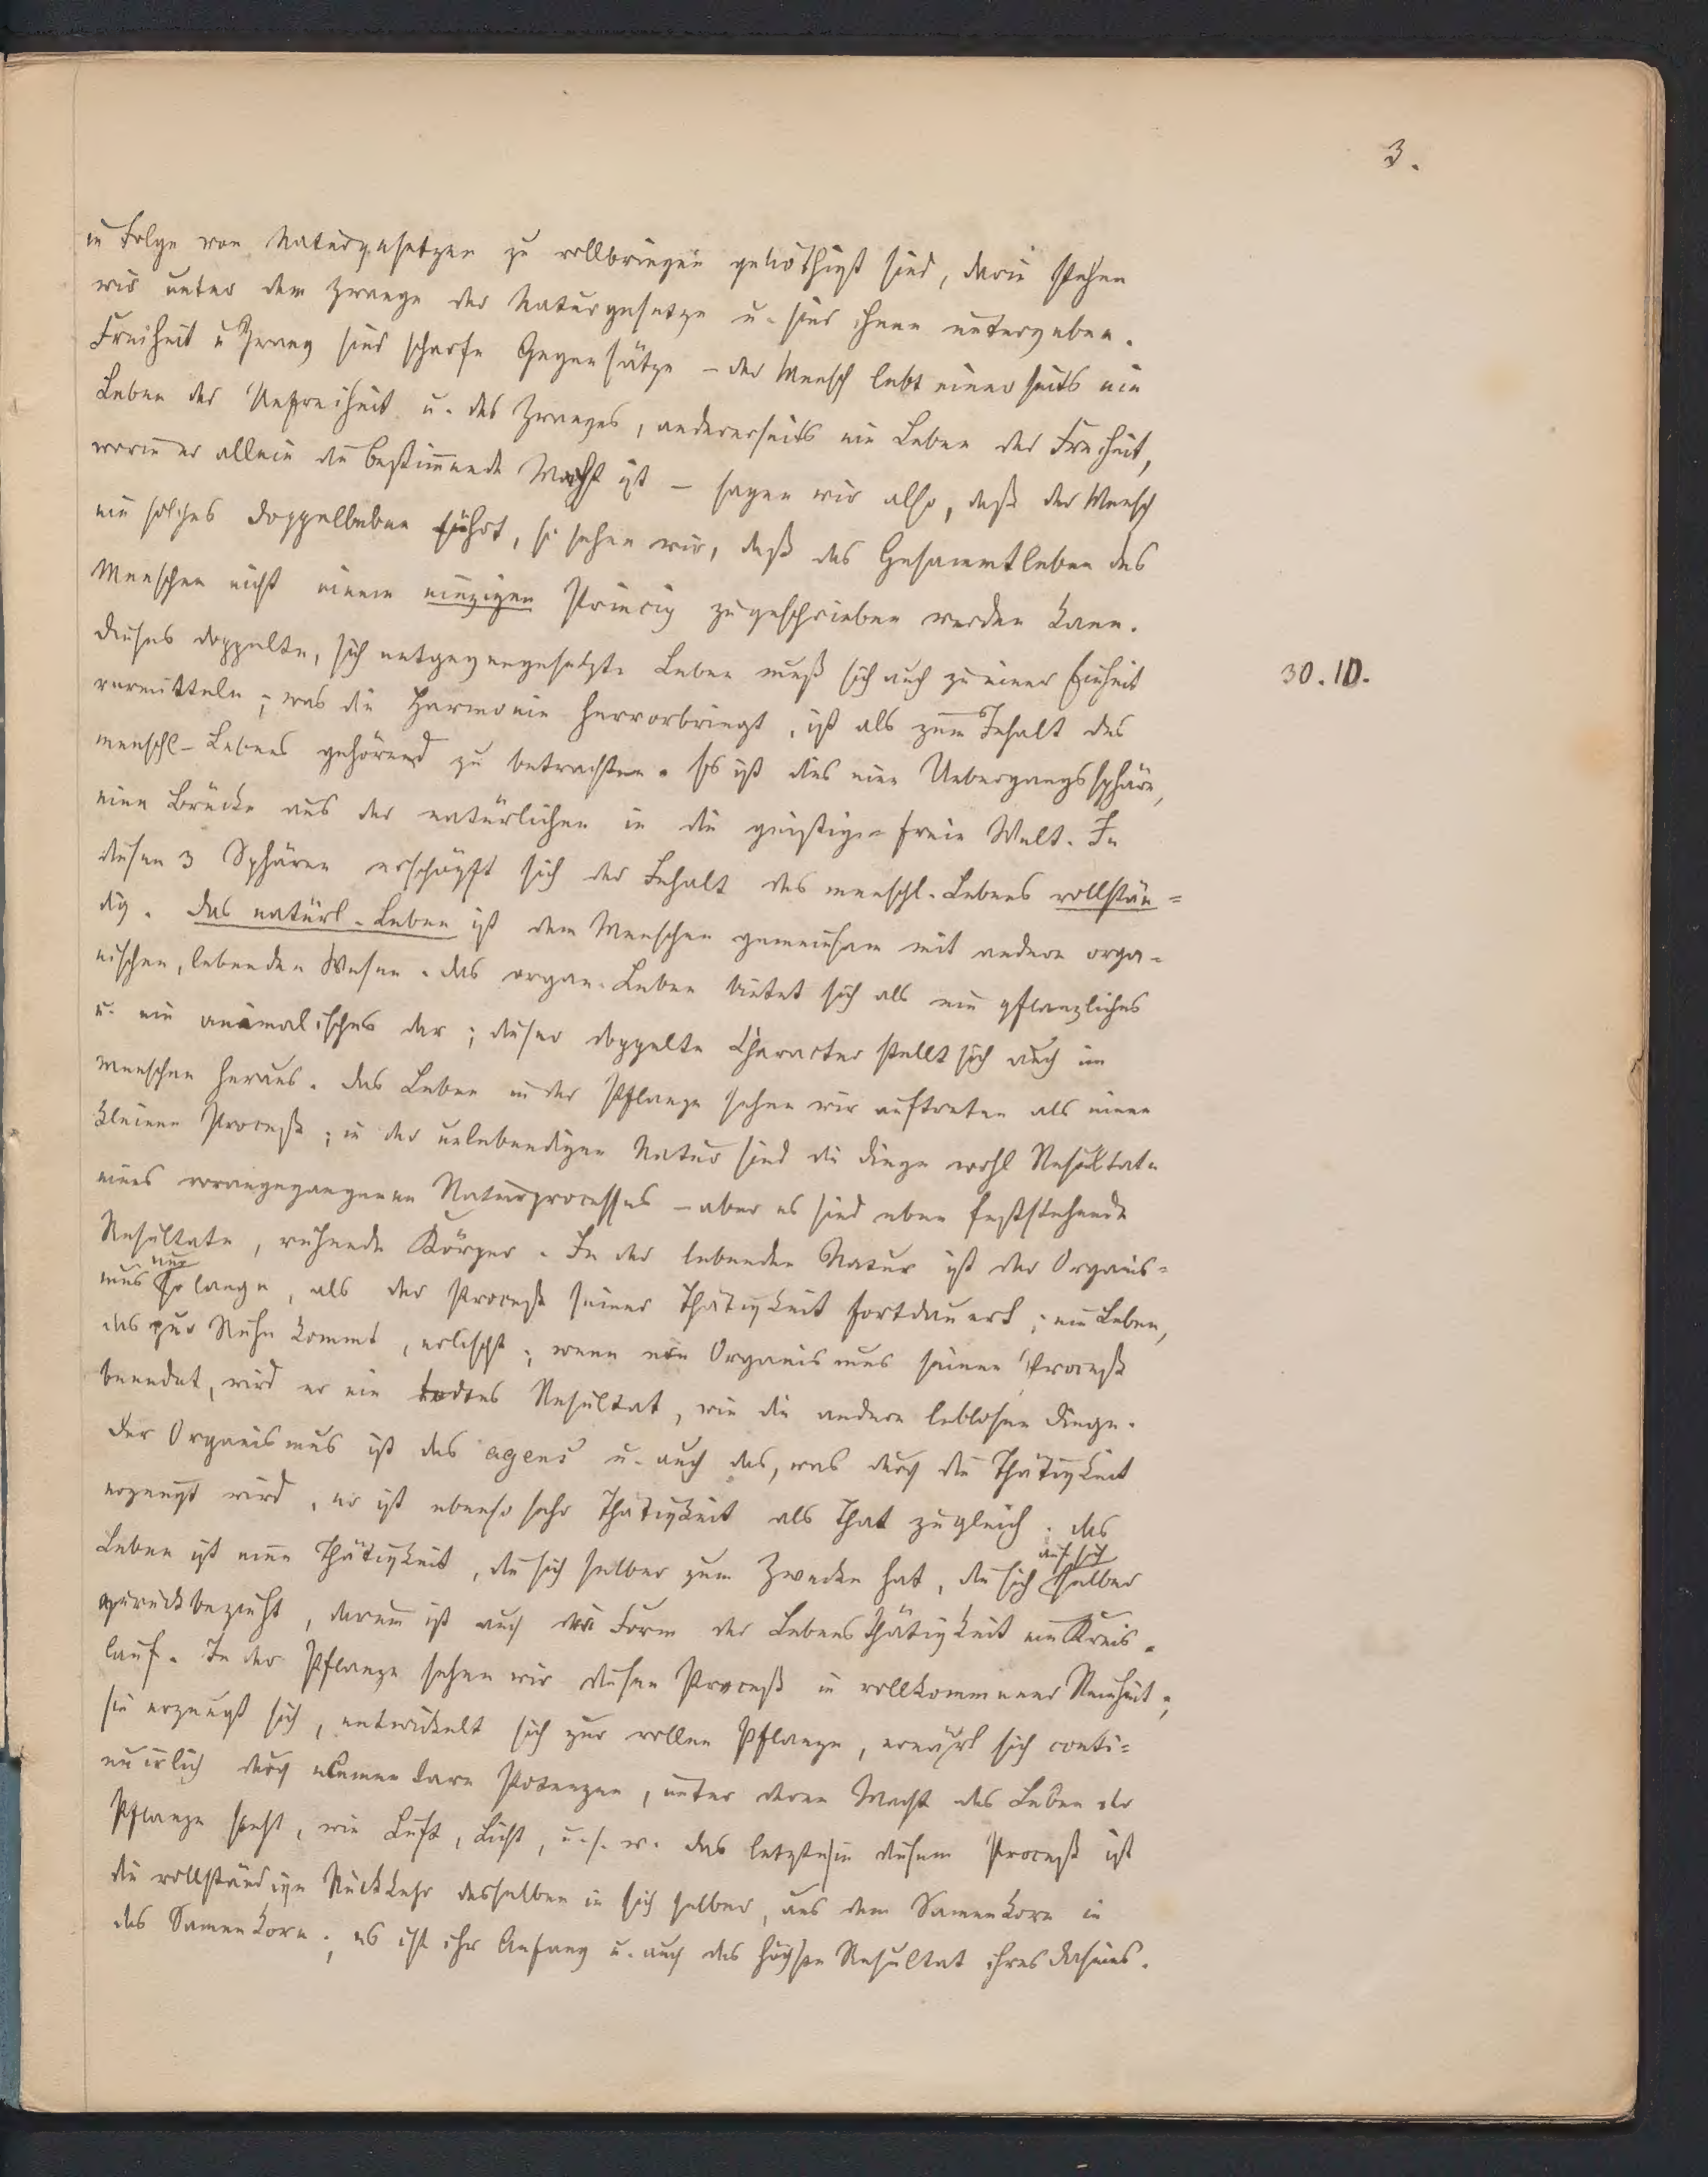 3.
in Folge von Naturgesetzen zu vollbringen genöthigt sind, darin stehen
wir unter dem Zwange der Naturgesetze u. sind ihnen untergeben.
Freiheit u Zwang sind scharfe Gegensätze – der Mensch lebt einerseits ein
Leben der Unfreiheit u. des Zwanges, andererseits ein Leben der Freiheit,
worin er allein die bestimmende Macht ist – sagen wir also, daß der Mensch
ein solches Doppelleben führt, so sehen wir, daß das Gesammtleben des
Menschen nicht einem einzigen Princip zugeschrieben werden kann.
Dieses doppelte, sich entgegengesetzte Leben muß sich auch zu einer Einheit
30. 10.
vermitteln; was die Harmonie hervorbringt, ist als zum Inhalt des
menschl. Lebens gehörend zu betrachten. Es ist dies eine Uebergangssphäre,
eine Brücke aus der natürlichen in die geistige freie Welt. In
diesen 3 Sphären erschöpft sich der Inhalt des menschl. Lebens vollstän=
dig. Das natürl. Leben ist dem Menschen gemeinsam mit andern orga=
nischen, lebenden Wesen. Das organ. Leben bietet sich als ein pflanzliches
u. ein animalisches dar; dieser doppelte Character stellt sich auch im
Menschen heraus. Das Leben in der Pflanze sehen wir auftreten als einen
kleinen Proceß; in der unlebendigen Natur sind die Dinge wohl Resultate
eines vorangegangenen Naturprocesses – aber es sind eben feststehende
Resultate, ruhende Körper. In der lebenden Natur ist der Organis=
mus nur so lange, als der Proceß seiner Thätigkeit fortdauert; ein Leben,
das zur Ruhe kommt, erlischt; wenn ein Organismus seinen Proceß
beendet, wird er ein todtes Resultat, wie die andern leblosen Dinge.
Der Organismus ist das agens u. auch das, was durch die Thätigkeit
erzeugt wird, er ist ebenso sehr Thätigkeit als That zugleich. Das
Leben ist eine Thätigkeit, die sich selber zum Zwecke hat, die sich auf sich selber
zurückbezieht, darum ist auch die Form der Lebensthätigkeit ein Kreis=
lauf. In der Pflanze sehen wir diesen Proceß in vollkommener Reinheit;
sie erzeugt sich, entwickelt sich zur vollen Pflanze, ernährt sich conti=
nuirlich durch elementare Potenzen, unter deren Macht das Leben der
Pflanze steht, wie Luft, Licht, u. s. w. Das letzte in diesem Proceß ist
die vollständige Rückkehr desselben in sich selber, aus dem Samenkorn in
das Samenkorn; es ist ihr Anfang u. auch das höchste Resultat ihres Daseins.